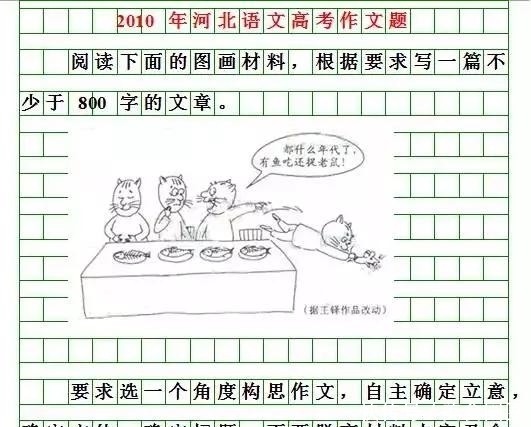 2010 年河北语文高考作文题
阅读下面的图画材料，根据要求写一篇不
少于 800 字的文章。
都什么年代了，
有鱼吃还捉老鼠！
（据王铎作品改动）
要求选一个角度构思作文，自主确定立意，